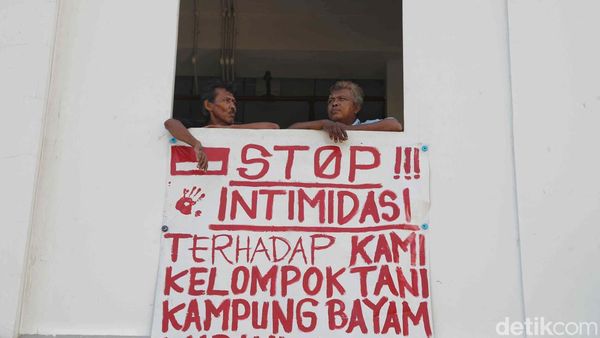 STOP !!!
INTIMIDASI
TERHADAP KAMI
KELOMPOK TANI
KAMPUNG BAYAM
detikcom